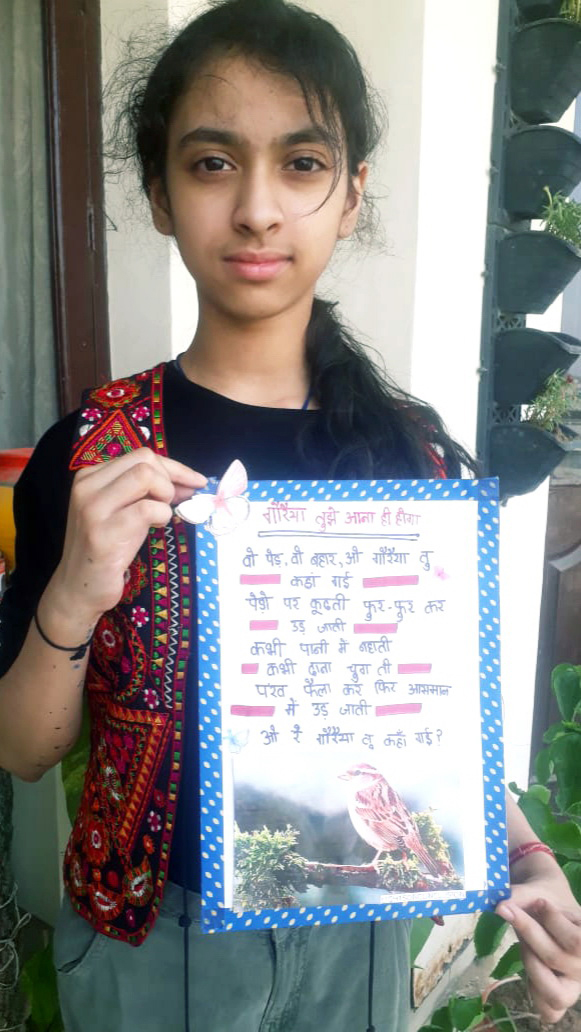 गौरैया तुझे आना ही होगा
वो पेड़, वो बहार, ओ गौरैया तु
कहाँ गई
पेड़ो पर कूदती फुर-फुर कर
उड़ जाती
कभी पानी में नहाती
कभी दाना चुग ती
पंख फैला कर फिर आसमान
में उड़ जाती
ओ रे गौरैया तू कहाँ गई?